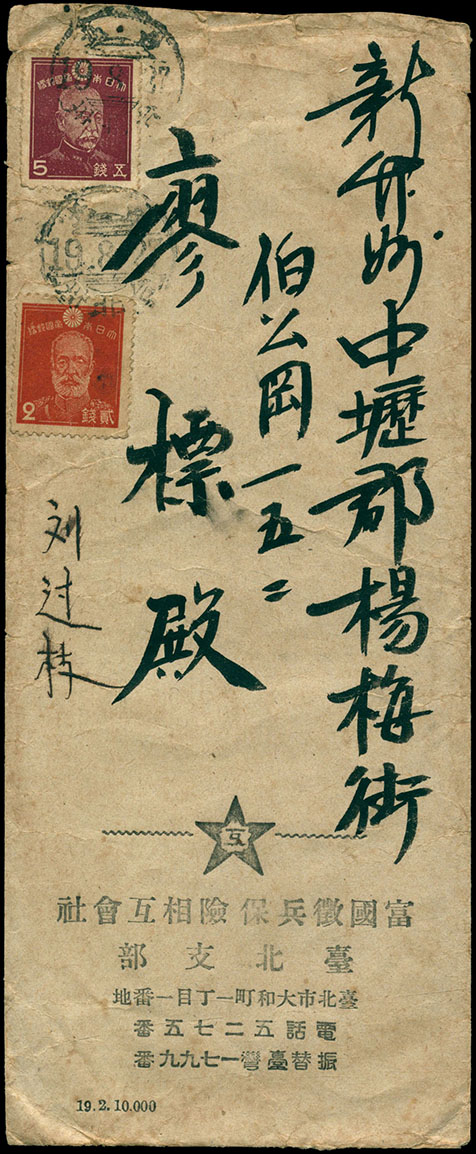 新竹州中壢郡楊梅街
伯公岡一五二
廖標殿
刘过枝
大日本帝國郵便
五錢
5
大日本帝國郵便
貳錢
2
19.8
互
富國徵兵保險相互會社
臺北支部
臺北市大和町一丁目一番地
電話五二七五番
振替臺灣一七九九番
19.2.10.000